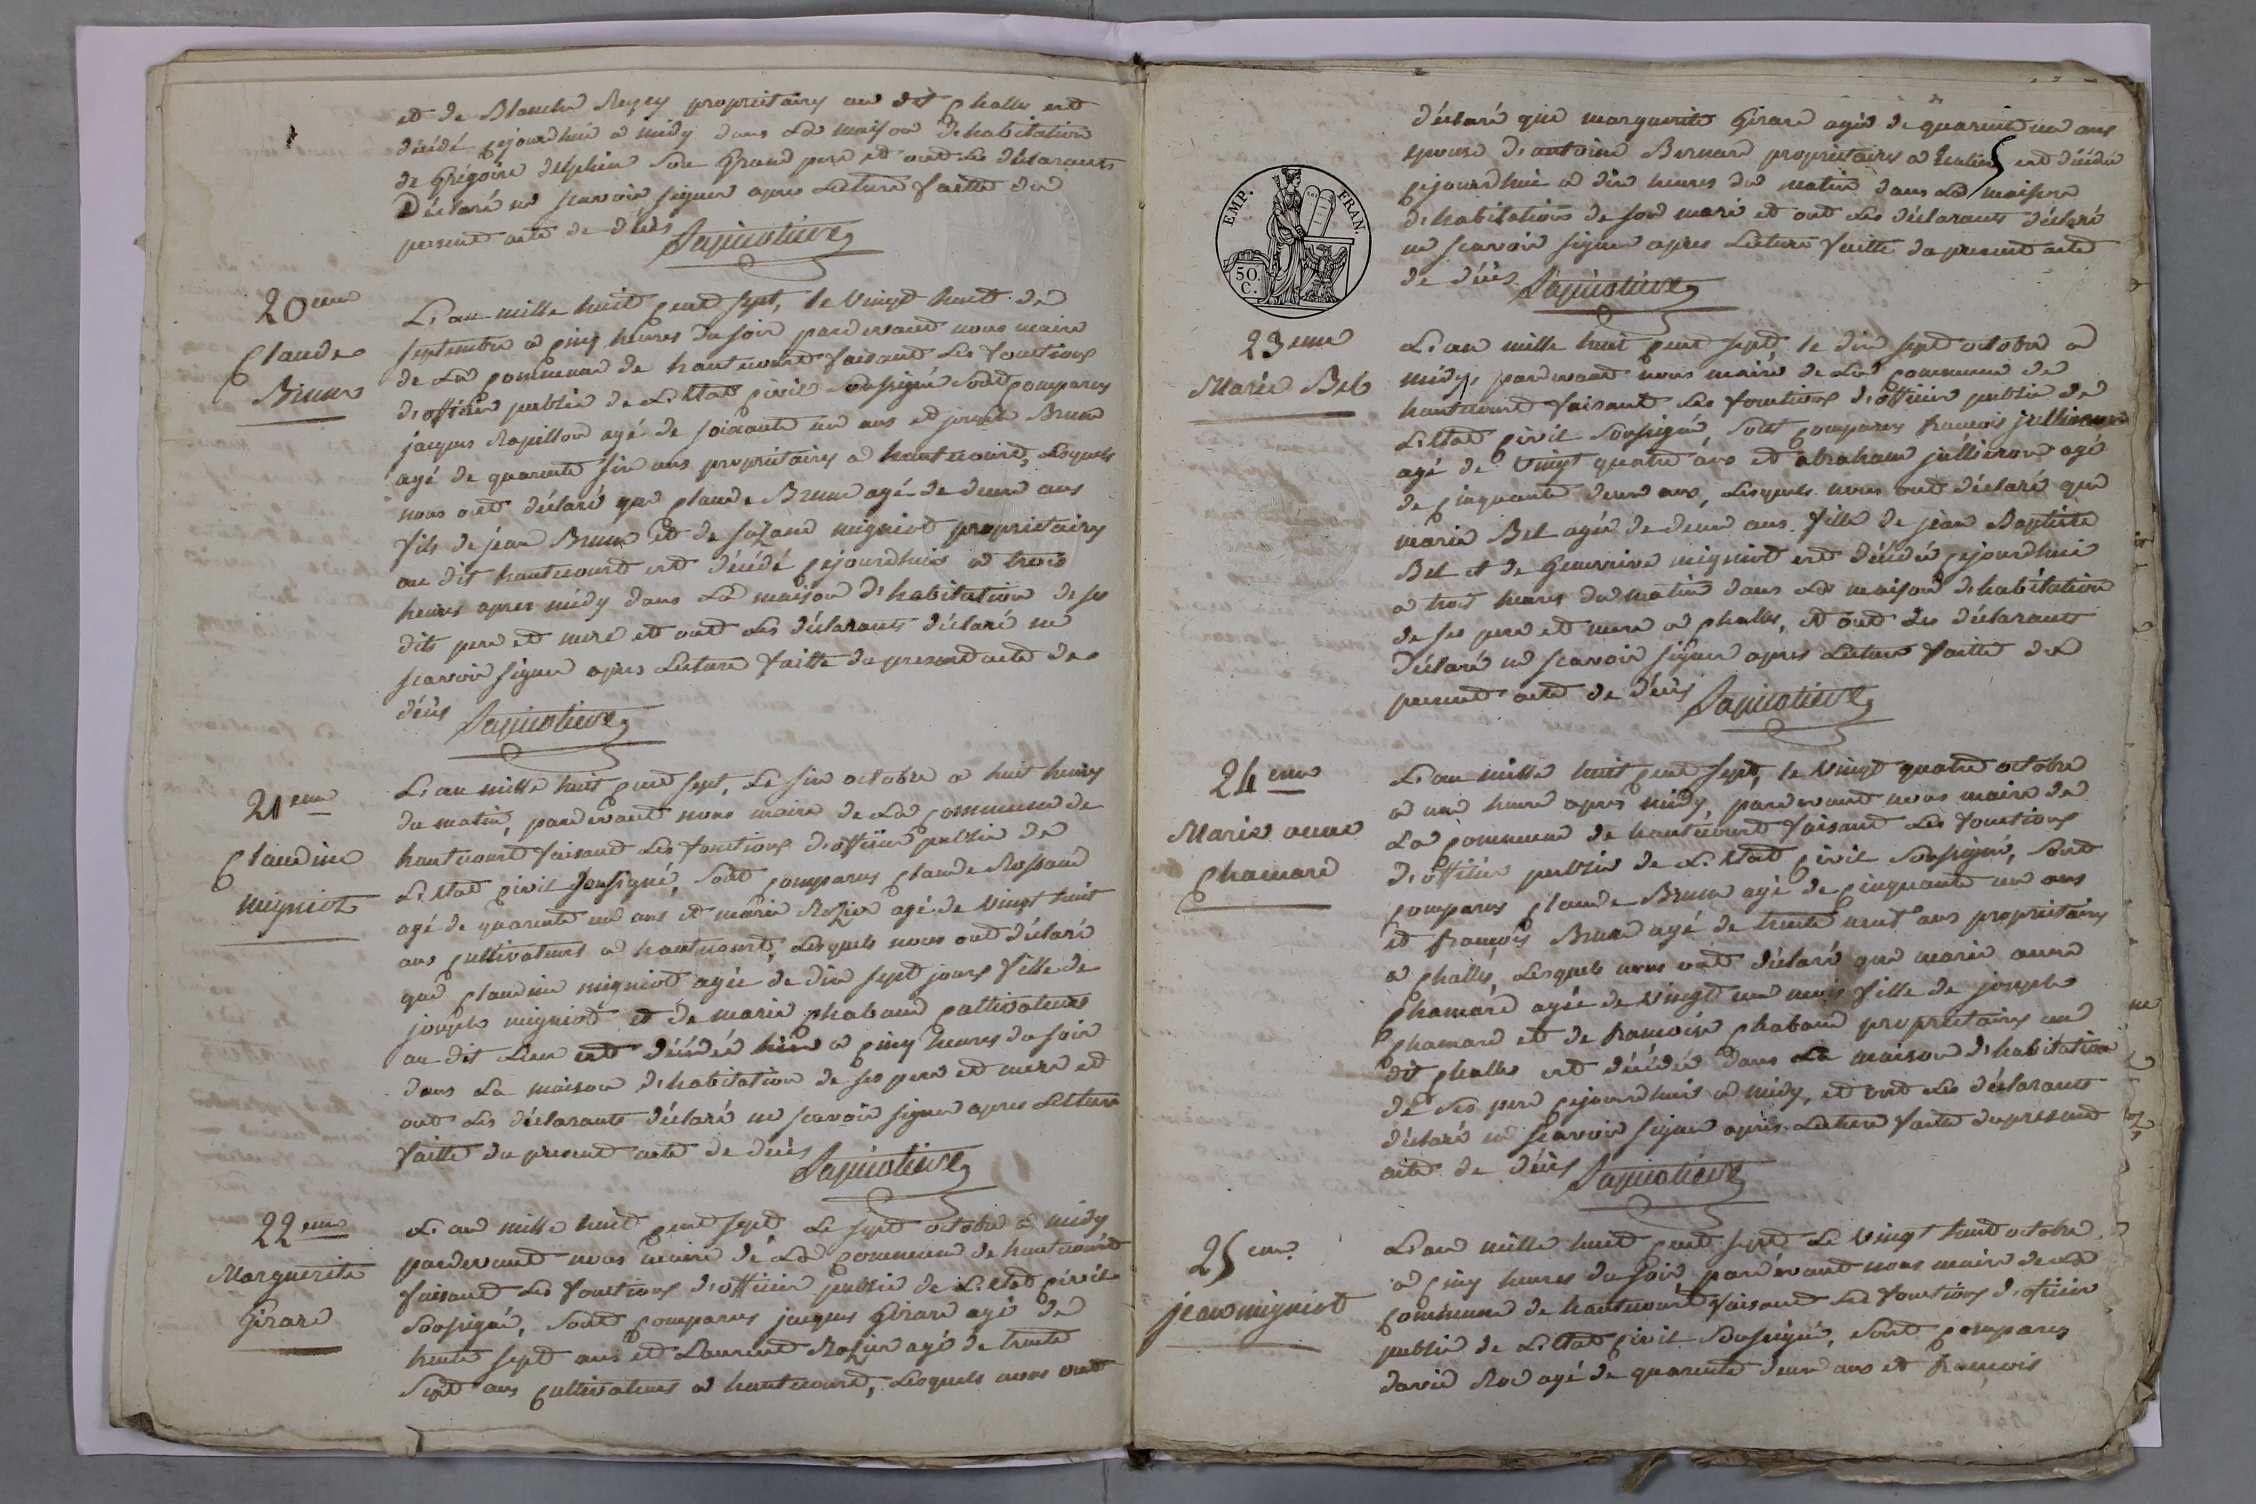 et de Blanche Reyey propriétaires au dit Challes est
décédé cejourdhui a midy dans la maison dehabitation
de Grégoire delphin son Grand pere et ont les déclarants
Déclaré ne scavoir signer apres Lecture faitte du
present acte de décès Lapicotiere
20eme
Claude
Brun
L'an mille huit cent sept, le vingt huit de
septembre a cinq heures du soir pardevant nous maire
de La commune de hautecourt faisant Les fonctions
d'officier public de L'Etat civil soussigné sont comparus
jacques Ropillon agé de soixante un ans et joseph Brun
agé de quarente six ans propriétaires a hautecourt, Lesquels
nous ont déclaré que Claude Brun agé de deux ans
fils de jean Brun et de suzane migniot propriétaires
au dit hautecourt est décédé cejourdhui a trois
heures apres midy dans La maison d'habitation de ses
dits pere et mere et ont Les déclarants déclaré ne
scavoir signer apres Lecture faitte du present acte de
décès Lapicotiere
21eme
Claudine
migniot
L'an mille huit cent sept, Le six octobre a huit heures
du matin, pardevant nous maire de La commune de
hautecourt faisant Les fonctions d'officier public de
L'Etat civil soussigné, sont comparus Claude Rossand
agé de quarente un ans et marie Rozier agé de vingt huit
ans cultivateurs a hautecourt, Lesquels nous ont déclaré
que Claudine migniot agée de dix sept jours fille de
joseph migniot et de marie Chaband cultivateurs
au dit Lieu est décédée hier a cinq heures du soir
dans La maison d'habitation de ses pere et mere et
ont Les déclarants déclaré ne scavoir signer apres Lecture
faitte du present acte de décès Lapicotiere
22eme
Marguerite
Girard
L'an mille huit cent sept Le sept octobre a midy
pardevant nous maire de La commune de hautecourt
faisant Les fonctions d'officier public de L'Etat civil
soussigné, sont comparus jacques Girard agé de
trente sept ans et Laurent Rozier agé de trente
sept ans cultivateurs a hautecourt, Lesquels nous ont
déclaré que marguerite Girard agée de quarente un ans
epouse d'antoine Bernard propriétaires a est décédée
cejourdhui a dix heures du matin dans La maison
d'habitation de son mari et ont Les déclarants déclaré
ne scavoir signer apres Lecture faitte du present acte
de décès Lapicotiere
EMP. FRAN.
50.
C.
23eme
Marie Bel
L'an mille huit cent sept, le dix sept octobre a
midy, pardevant nous maire de La commune de
hautecourt faisant Les fonctions d'officier public de
L'Etat civil soussigné sont comparus francois jullieron
agé de vingt quatre ans et abraham jullieron agé
de cinquante deux ans, Lesquels nous ont déclaré que
marie Bel agée de deux ans fille de jean Baptiste
Bel et de migniot est décédée cejourdhui
a trois heures du matin dans La maison d'habitation
de ses pere et mere a Challes, et ont Les déclarants
Déclaré ne scavoir signer apres Lecture faitte du
present acte de décès Lapicotiere
24eme
Marie anne
Chamard
L'an mille huit cent sept, le vingt quatre octobre
a une heure apres midy, pardevant nous maire de
La commune de hautecourt faisant Les fonctions
d'officier public de L'Etat civil soussigné, sont
comparus Claude Brun agé de cinquante un ans
et francois Brun agé de trente neuf ans propriétaires
a Challes, Lesquels nous ont déclaré que marie anne
Chamard agée de vingt un mois fille de joseph
Chamard et de francoise Chaband propriétaires au
dit Challes est décédée dans La maison d'habitation
de ses pere cejourdhui a midy, et ont Les déclarants
déclaré ne scavoir signer apres Lecture faitte du present
acte de décès Lapicotiere
25eme
jean migniot
L'an mille huit cent sept Le vingt huit octobre
a cinq heures du soir pardevant nous maire de La
commune de hautecourt faisant Les fonctions d'officier
public de L'Etat civil soussigné, sont comparus
david Roc agé de quarente deux ans et francois